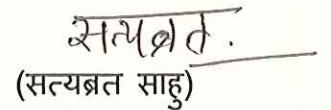 सत्यब्रत.
(सत्यब्रत साहु)